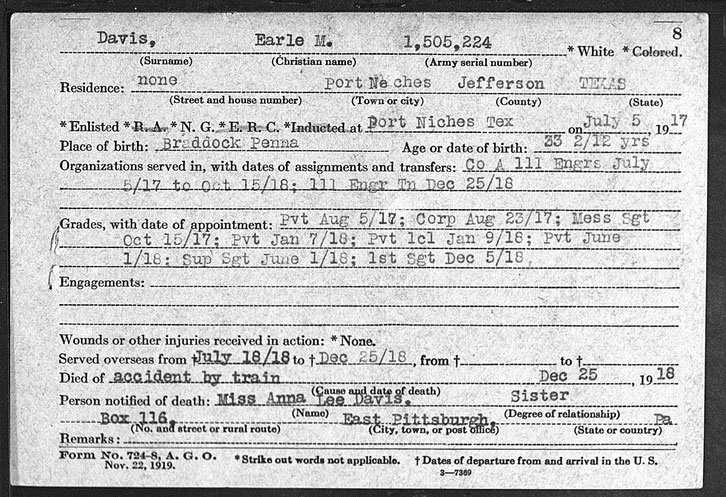 8
Davis, Earle M. 1,505,224 * White * Colored.
(Surname) (Christian name) (Army serial number)
Residence: none Port Neches Jefferson TEXAS
(Street and house number) (Town or city) (County) (State)
*Enlisted *R. A. *N. G. *E. R. C. *Inducted at Port Niches Tex on July 5, 1917
Place of birth: Braddock Penna Age or date of birth: 33 2/12 yrs
Organizations served in, with dates of assignments and transfers: Co A 111 Engrs July
5/17 to Oct 15/18; 111 Engr Tn Dec 25/18
Grades, with date of appointment: Pvt Aug 5/17; Corp Aug 23/17; Mess Sgt
Oct 15/17; Pvt Jan 7/18; Pvt 1cl Jan 9/18; Pvt June
1/18; Sup Sgt June 1/18; 1st Sgt Dec 5/18
Engagements:
Wounds or other injuries received in action: * None.
Served overseas from †July 18/18 to † Dec 25/18, from † to †
Died of accident by train Dec 25, 1918
(Cause and date of death)
Person notified of death: Miss Anna Lee Davis. Sister
(Name) (Degree of relationship)
Box 116, East Pittsburgh, Pa
(No. and street or rural route) (City, town, or post office) (State or country)
Remarks:
Form No. 724-8, A. G. O. *Strike out words not applicable. † Dates of departure from and arrival in the U. S.
Nov. 22, 1919. 3—7369